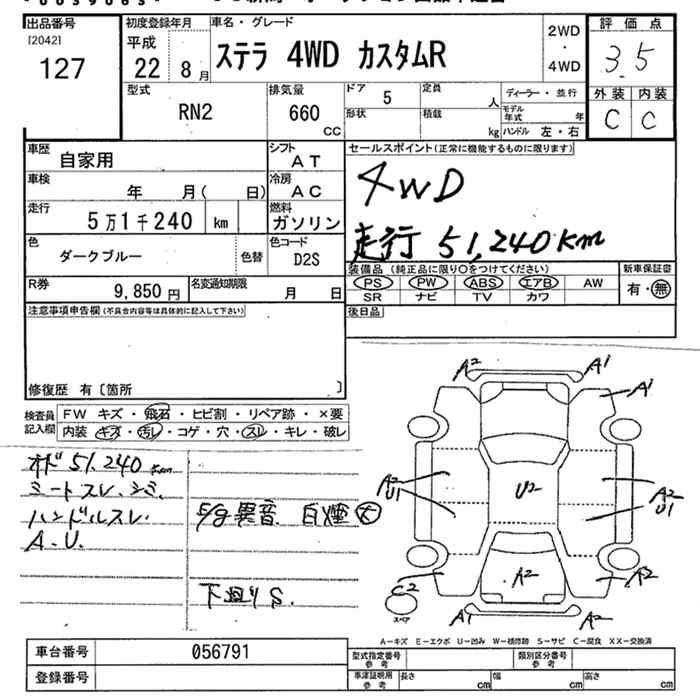 出品番号 初度登録年月 車名・グレード 2WD・4WD 評価点
[2042]
127
平成 22年 8月 ステラ 4WD カスタムR 3.5
型式 排気量 ドア 5 定員 人 ディーラー・並行 外装 内装
RN2 660 CC 形状 積載 kg モデル年式 年 C C
ハンドル 左・右
車歴 自家用 シフト AT セールスポイント(正常に機能するものに限ります)
車検 年 月( 日) 冷房 AC 4WD
走行 5万1千240 km 燃料 ガソリン 走行 51,240km
色 ダークブルー 色替 色コード D2S
装備品 (純正品に限り○をつけてください) 新車保証書
R券 9,850円 名変通知期限 月 日 PS PW ABS エアB AW 有・無
SR ナビ TV カワ
注意事項申告欄(不具合内容等は具体的に記入して下さい) 後日品
修復歴 有〔箇所 〕
検査員記入欄 FW キズ・飛石・ヒビ割・リペア跡・×要
内装 キズ・汚レ・コゲ・穴・スレ・キレ・破レ
オド 51,240km
シートスレ、シミ、
ハンドルスレ、
A.U.
E/g異音 白煙 大
下廻りS.
A2 A1 A1
A2 U1 U2 A2 U1
C2 A2 A2
A1 A1
スペア
A-キズ E-エクボ U-凹み W-補修跡 S-サビ C-腐食 XX-交換済
車台番号 056791 型式指定番号 参考 類別区分番号 参考
登録番号 車庫証明用 参考 長さ cm 幅 cm 高さ cm